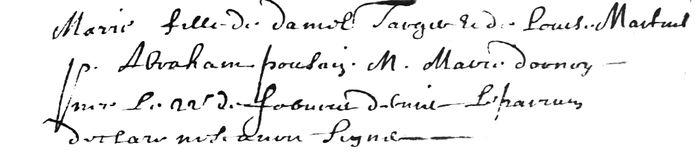 Marie fille de Daniel Targer & de Louise Martus
p. Abraham poulain. M. Marie dornoy
nee le 22e de febvrier dernier Le parrain
declare ne scavoir signer